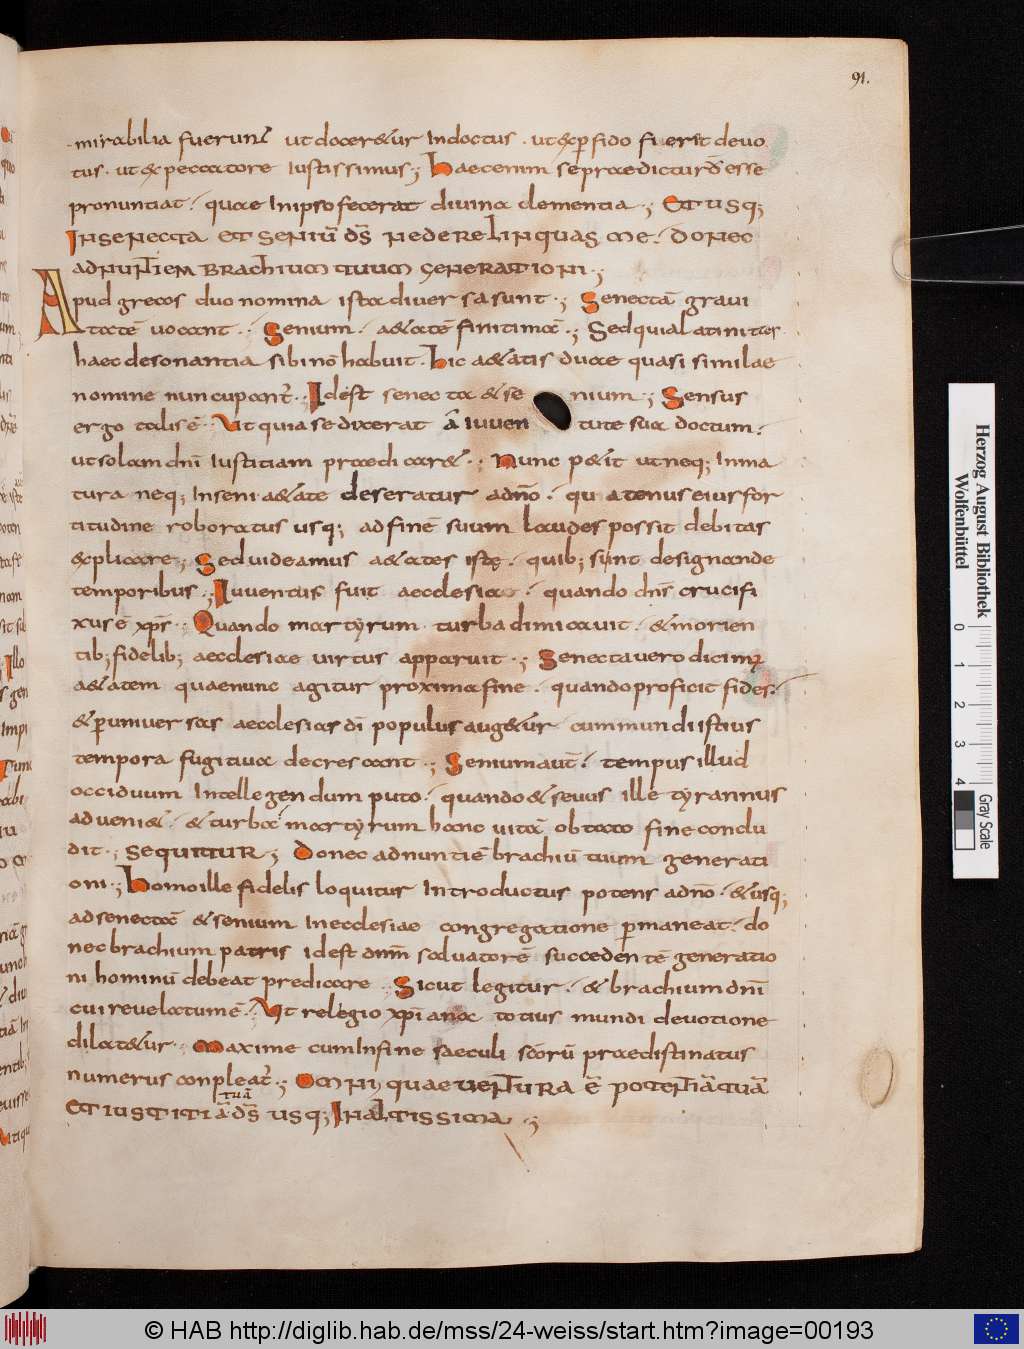 91.
mirabilia fuerunt ut docer&ur Indoctus . ut &x perfido fuerit deuo
tus . ut &x peccatore Iustissimus ·; Haec enim se praedictur̄ ds̄ esse
pronuntiat . quae In ipso fecerat diuina clementia ·; ET USQ;
IN SENECTA ET SENIŪ DS̄ NE DERELINQUAS ME . DONEC
ADNUNTIEM BRACHIUM TUUM GENERATIONI ·;
Apud grecos duo nomina ista diuersa sunt ·; Senectā graui
tatē uocant . Senium . a&atē finitimā ·; Sed quia latinitas
haec desonantia sibi nō habuit . hic a&atis duae quasi similae
nomine nuncupant̄ . Id est senecta & se nium ; Sensus
ergo talis ē . Ut quia se dixerat ā iuuen tute sua doctum .
ut solam dn̄i Iustitiam praedicar& ·; Nunc p&it ut neq; In ma
tura neq; In seni a&ate deseratur a dn̄o . quatenus eius for
titudine roboratus usq; ad finē suum laudes possit debitas
&xplicare ; Sed uideamus a&ates istę . quib; sunt designande
temporibus ·; Iuuentus fuit aecclesiae . quando dn̄s crucifi
xus ē xp̄s . Quando martyrum turba dimicauit . & morien
tib; fidelib; aecclesiae uirtus apparuit ·; Senecta uero dicimꝰ
a&atem quae nunc agitur proxima fine . quando proficit fides .
& per uniuersas aecclesias dī populus aug&ur cum mundi istius
tempora fugitiua decrescant ·; Senium aut̄ . tempus illud
occiduum Intellegendum puto . quando & seuus ille tyrannus
adueni& . & turba martyrum hanc uitā obtato fine conclu
dit ·; SEQUITUR ; Donec adnuntiē brachiū tuum generati
oni ·; Homo ille fidelis loquitur Introductus potens a dn̄o . & usq;
ad senectā & senium In ecclesiae congregatione p̄maneat . do
nec brachium patris id est dn̄m saluatorē succedentē generatio
ni hominū debeat predicare . Sicut legitur . & brachium dn̄i
cui reuelatum ē . Ut relegio xp̄iana totius mundi deuotione
dilat&ur . Maxime cum In fine saeculi sc̄orū praedistinatus
numerus conpleat̄ ·; OMNI quae UENTURA Ē POTENTIĀ TUĀ
tuā
ET IUSTITIĀ DS̄ USQ; IN ALTISSIMA ·;
Herzog August Bibliothek
Wolfenbüttel
0 1 2 3 4
Gray Scale
© HAB http://diglib.hab.de/mss/24-weiss/start.htm?image=00193